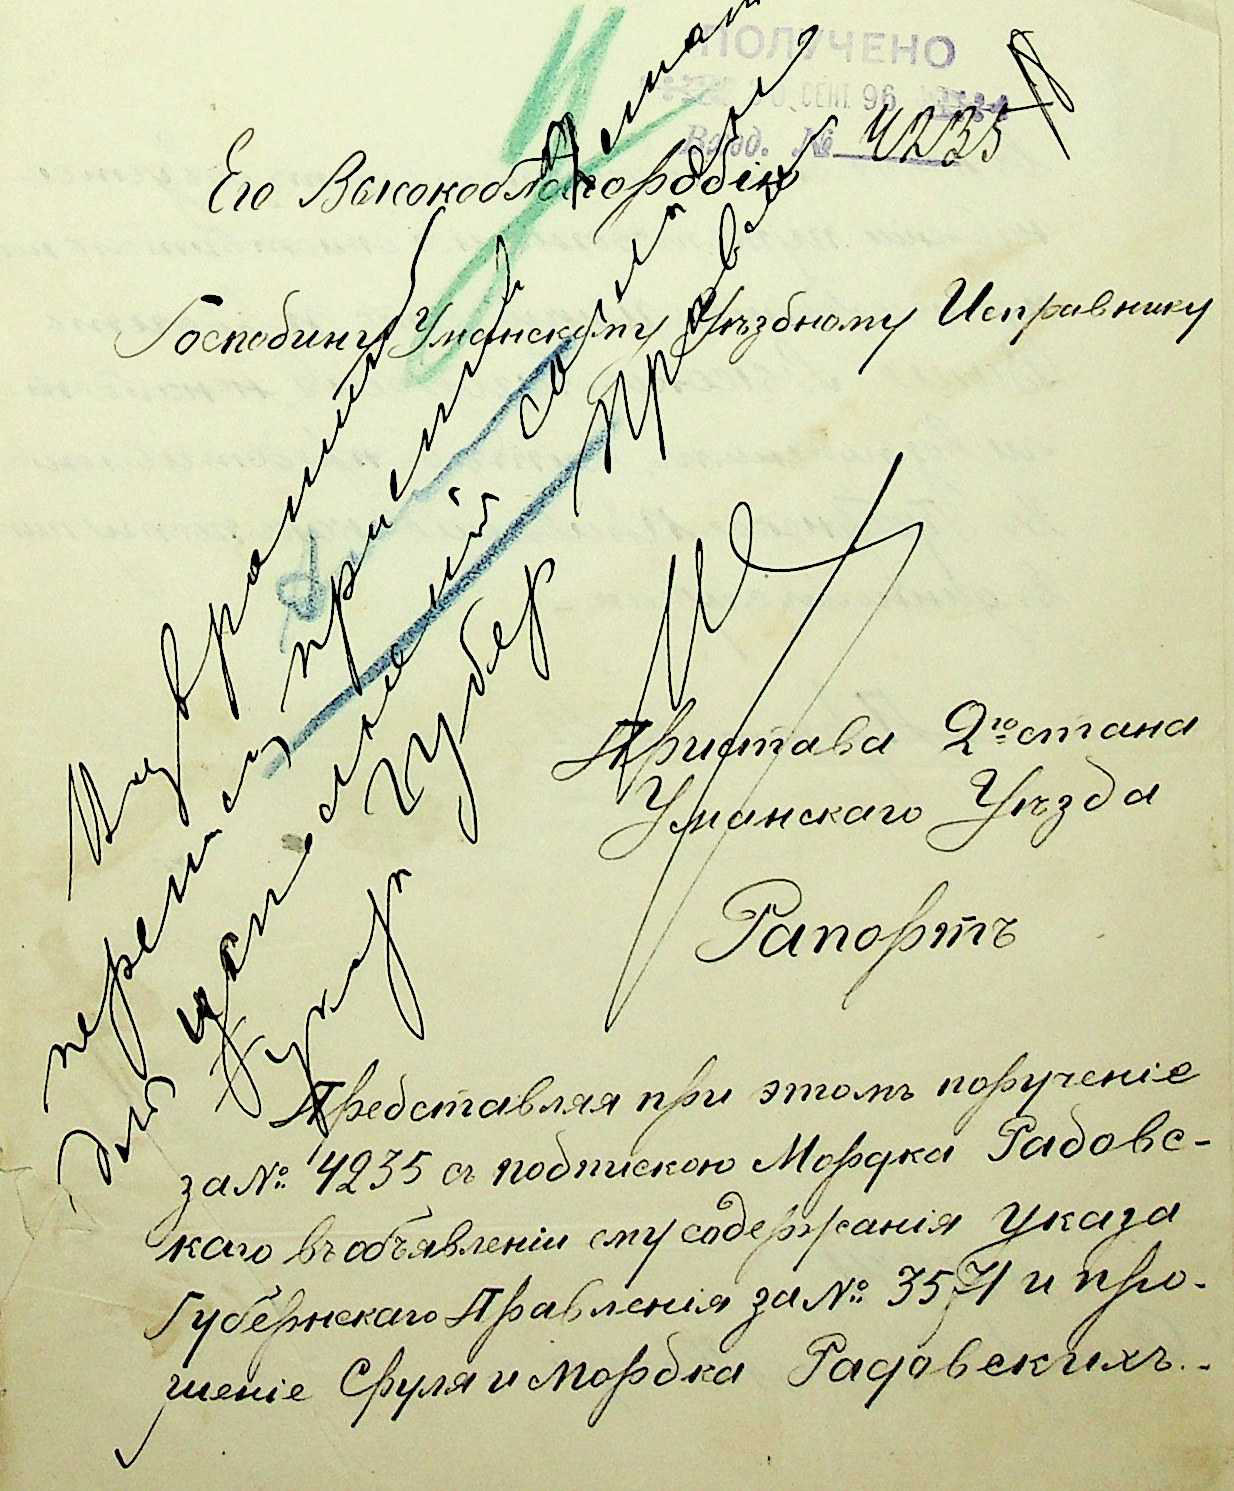 ПОЛУЧЕНО
СЕНТ. 96
Вход. № 4235
Его Высокоблагородію
Господину Уманскому Уѣздному Исправнику
Пристава 2го стана
Уманскаго Уѣзда
Рапортъ
Представляя при этомъ порученіе
за №: 4235 съ подпискою Мордка Радовс-
каго въ объявленіи ему содержанія указа
Губернскаго Правленія за №: 3571 и про-
шеніе Сруля и Мордка Радовскихъ.-
Возвратить
переписку приставу
для
указа Губер Правл